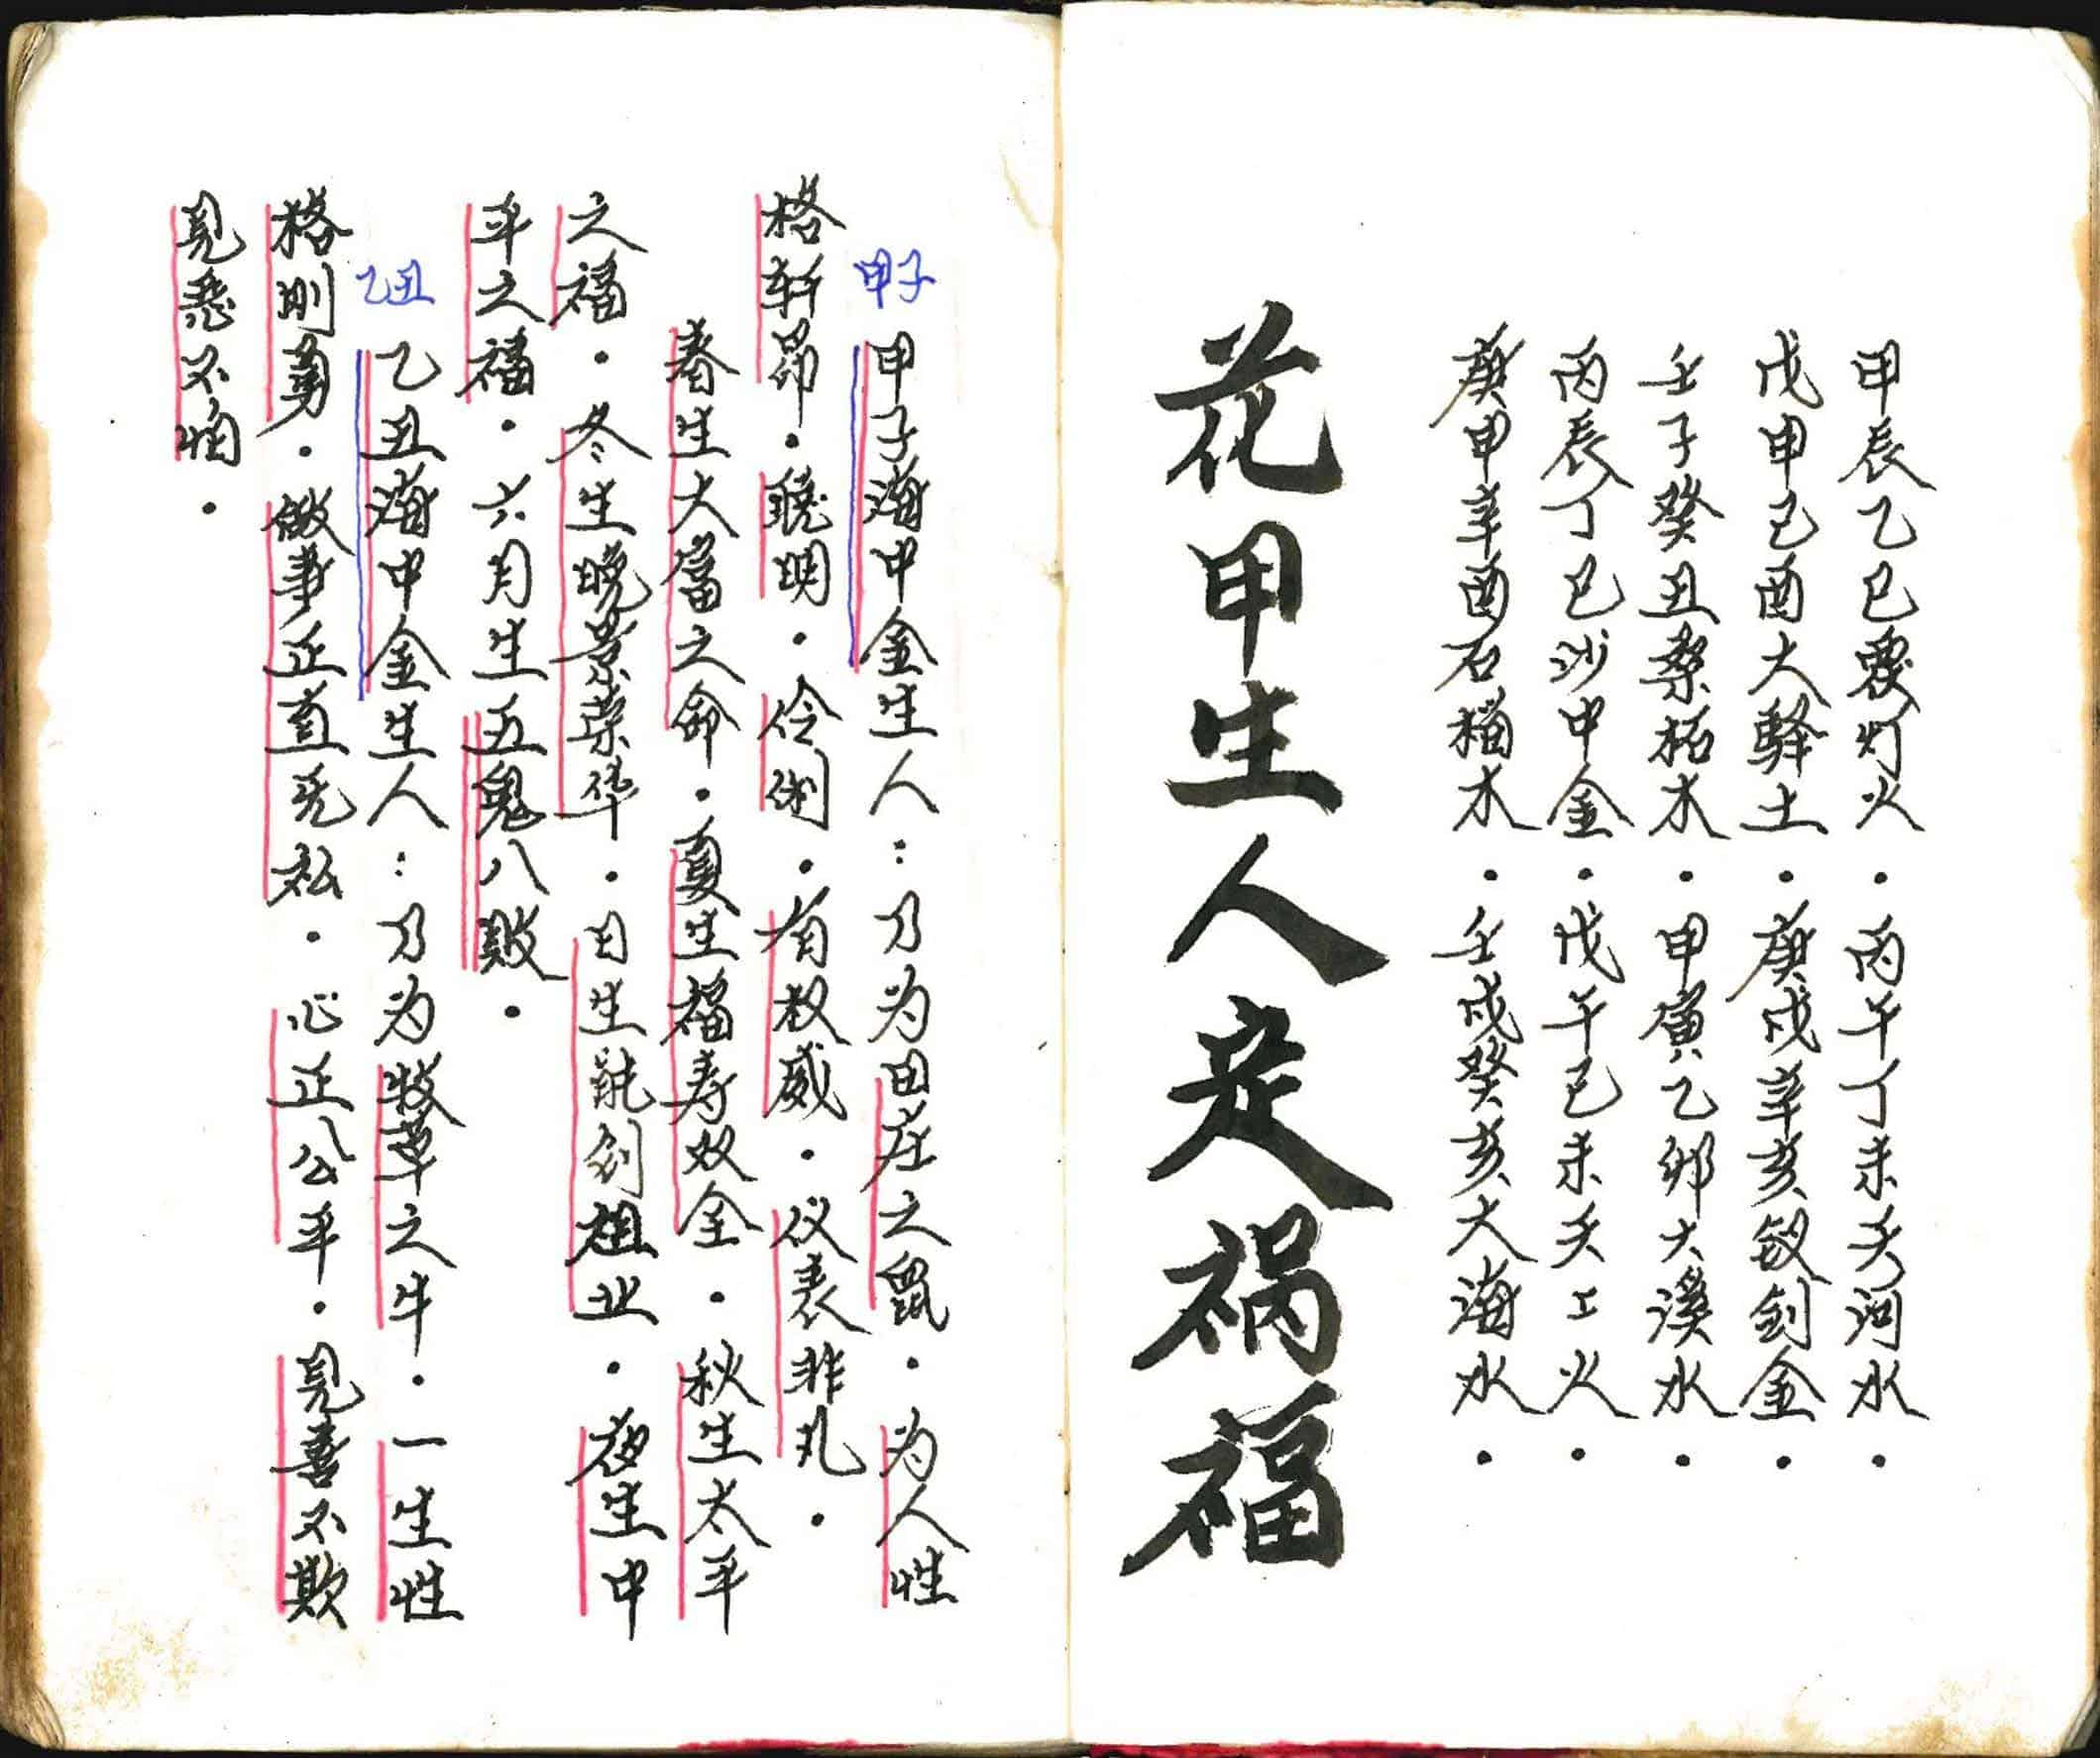 甲辰乙巳霞灯火．丙午丁未天河水．
戊申己酉大驿土．庚戌辛亥钗剑金．
壬子癸丑桑柘木．甲寅乙卯大溪水．
丙辰丁巳沙中金．戊午己未天上火．
庚申辛酉石榴木．壬戌癸亥大海水．
花甲生人定祸福
甲子
甲子海中金生人：乃为田庄之鼠．为人性
格轩昂．聪明．伶俐．有权威．仪表非凡．
春生大富之命．夏生福寿双全．秋生太平
之福．冬生晚景荣华．日生能创祖业．夜生中
平之福．六月生五鬼八败．
乙丑
乙丑海中金生人：乃为牧草之牛．一生性
格刚勇．做事正直无私．心正公平．见善不欺
见恶不怕．